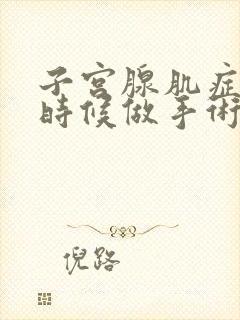 子宮腺肌症
時候做手術
倪路